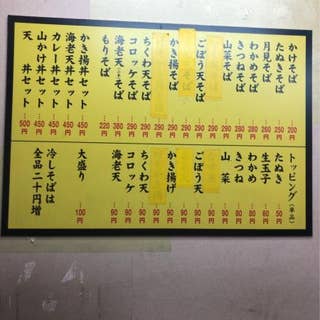 かけそば 200円
たぬきそば 250円
月見そば 250円
わかめそば 250円
きつねそば 250円
山菜そば 290円
ごぼう天そば 290円
かき揚そば 290円
ちくわ天そば 290円
コロッケそば 290円
海老天そば 380円
もりそば 220円
かき揚丼セット 450円
海老天丼セット 450円
カレー丼セット 450円
山かけ丼セット 450円
天丼セット 500円
トッピング(単品)
たぬき 50円
生玉子 60円
わかめ 80円
きつね 80円
山菜 90円
ごぼう天 90円
かき揚げ 90円
ちくわ天 90円
コロッケ 90円
海老天 90円
大盛り 100円
冷しそばは
全品二十円増